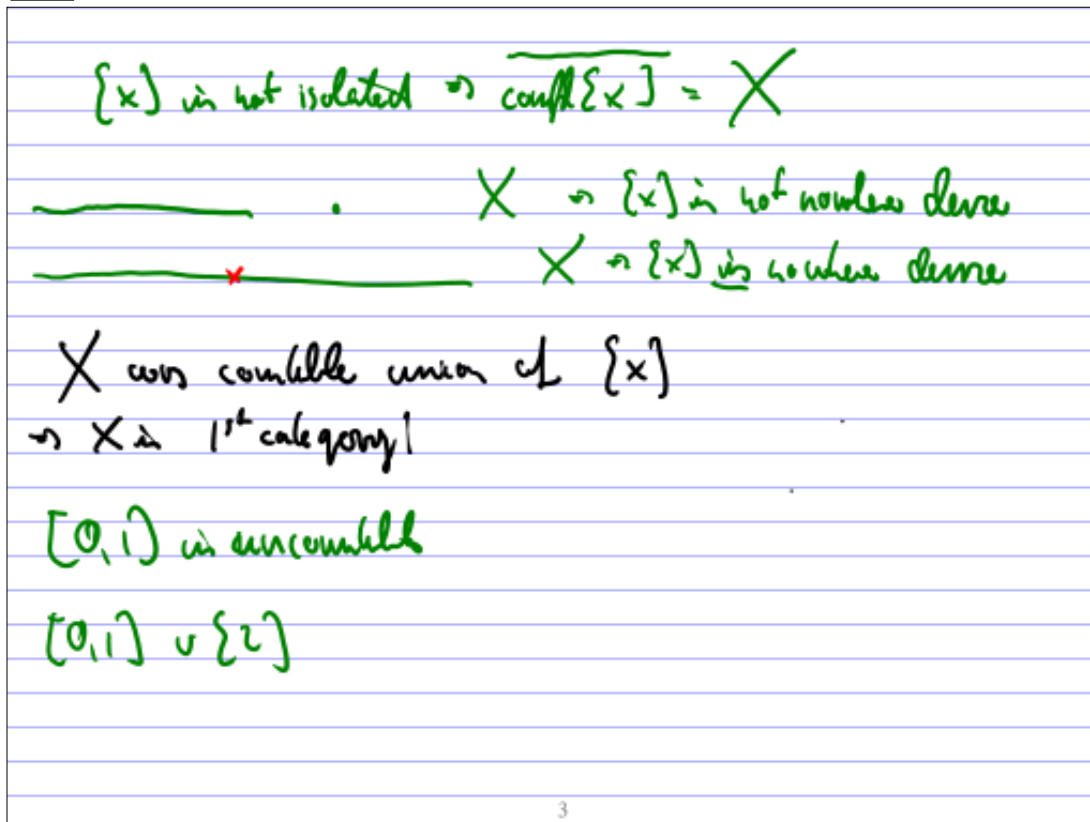 {x} is not isolated ⇒ \overline{compl{x}} = X
X ⇒ {x} is not nowhere dense
X ⇒ {x} is nowhere dense
X was countable union of {x}
⇒ X is 1st category!
[0,1] is uncountable
[0,1] ∪ {2}
3